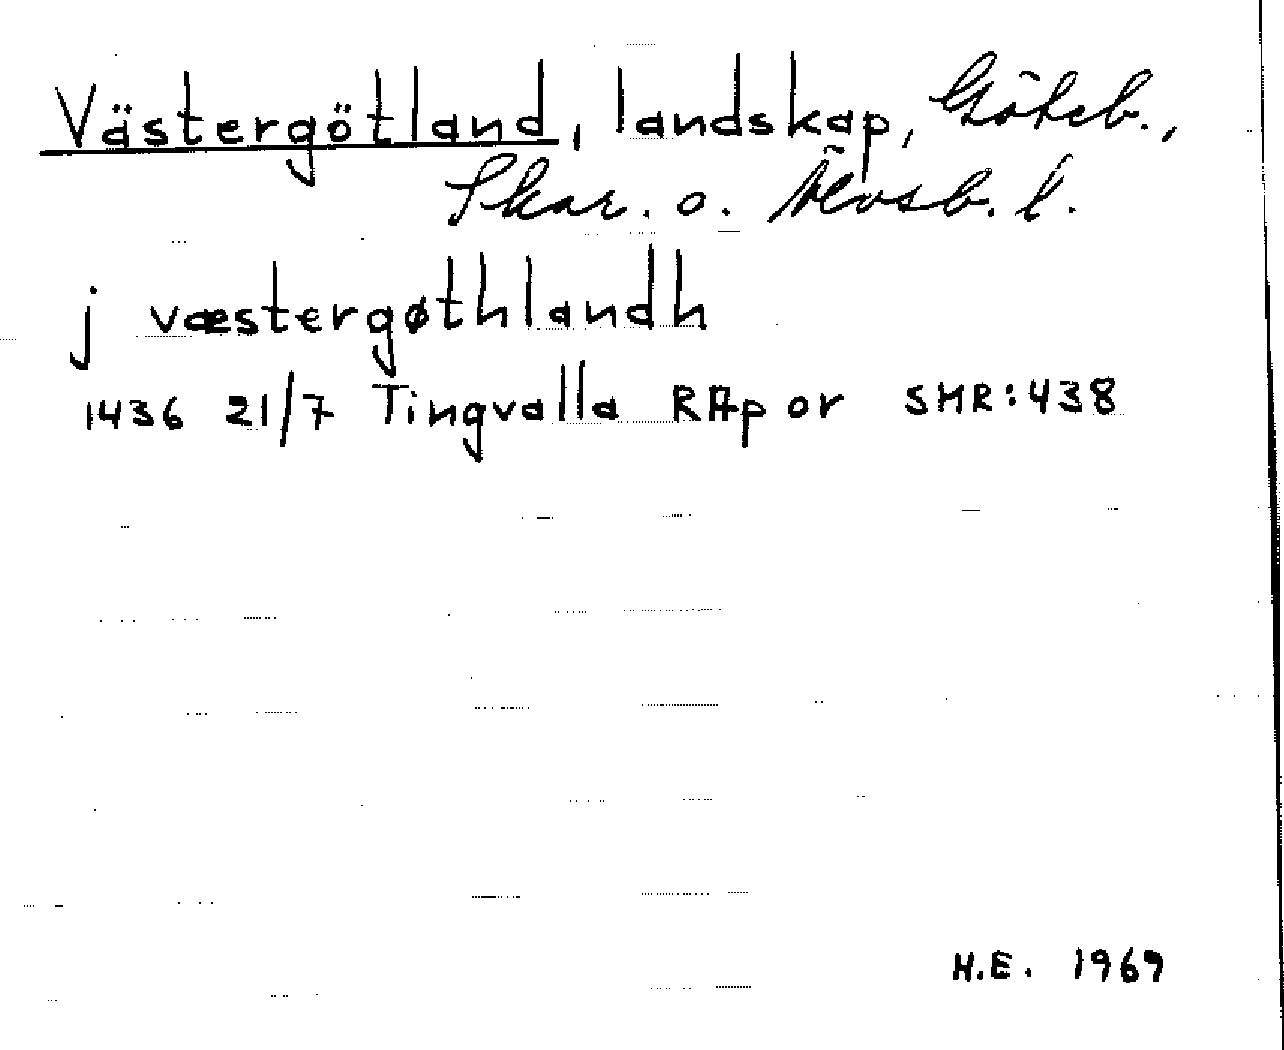 Västergötland, landskap, Göteb.,
Skar. o. Älvsb. l.
j væstergøthlandh
1436 21/7 Tingvalla RAp or SMR:438
H.E. 1969